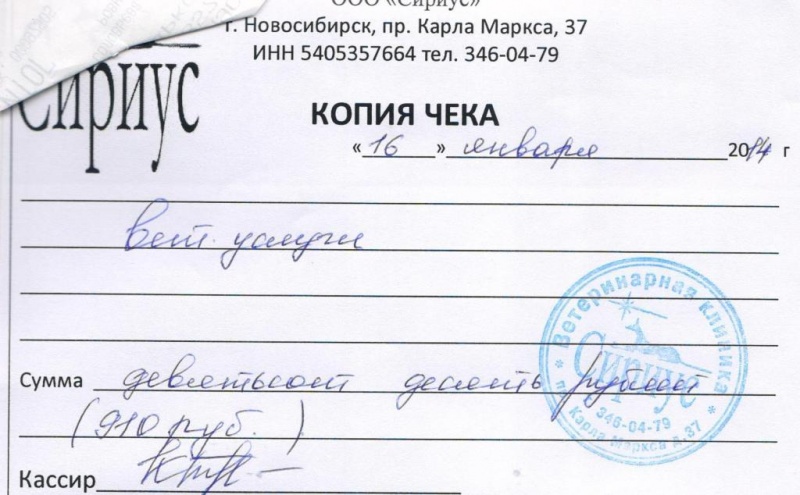 ООО «Сириус»
г. Новосибирск, пр. Карла Маркса, 37
ИНН 5405357664 тел. 346-04-79
Сириус
КОПИЯ ЧЕКА
«16» января 2014 г
вет. услуги
Ветеринарная клиника
Сириус
346-04-79
пр. Карла Маркса д.37
Сумма девятьсот десять рублей
(910 руб.)
Кассир